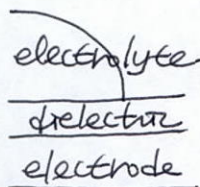 electrolyte
dielectric
electrode